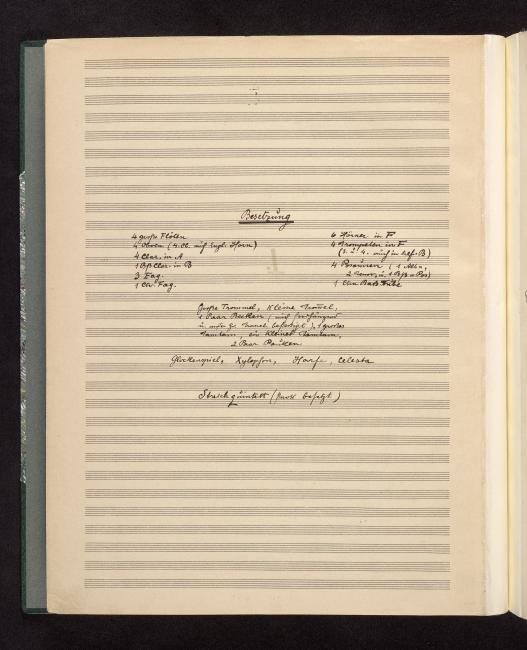 Besetzung
4 große Flöten
4 Oboen (4. Ob. auch Engl. Horn)
4 Clar. in A
1 Bß Clar. in B
3 Fag.
1 Ctr. Fag.
6 Hörner in F
4 Trompeten in F
(3. u. 4. auch in B)
4 Posaunen (1 Alt-,
2 Tenor, u. 1 Bß-Pos)
1 Ctr. Baß Tuba
Große Trommel, Kleine Trommel,
1 Paar Becken (
gr. befestigt), 1 großes
Tamtam, ein kleines Tamtam,
2 Paar Pauken
Glockenspiel, Xylophon, Harfe, Celesta
Streichquintett (stark besetzt)